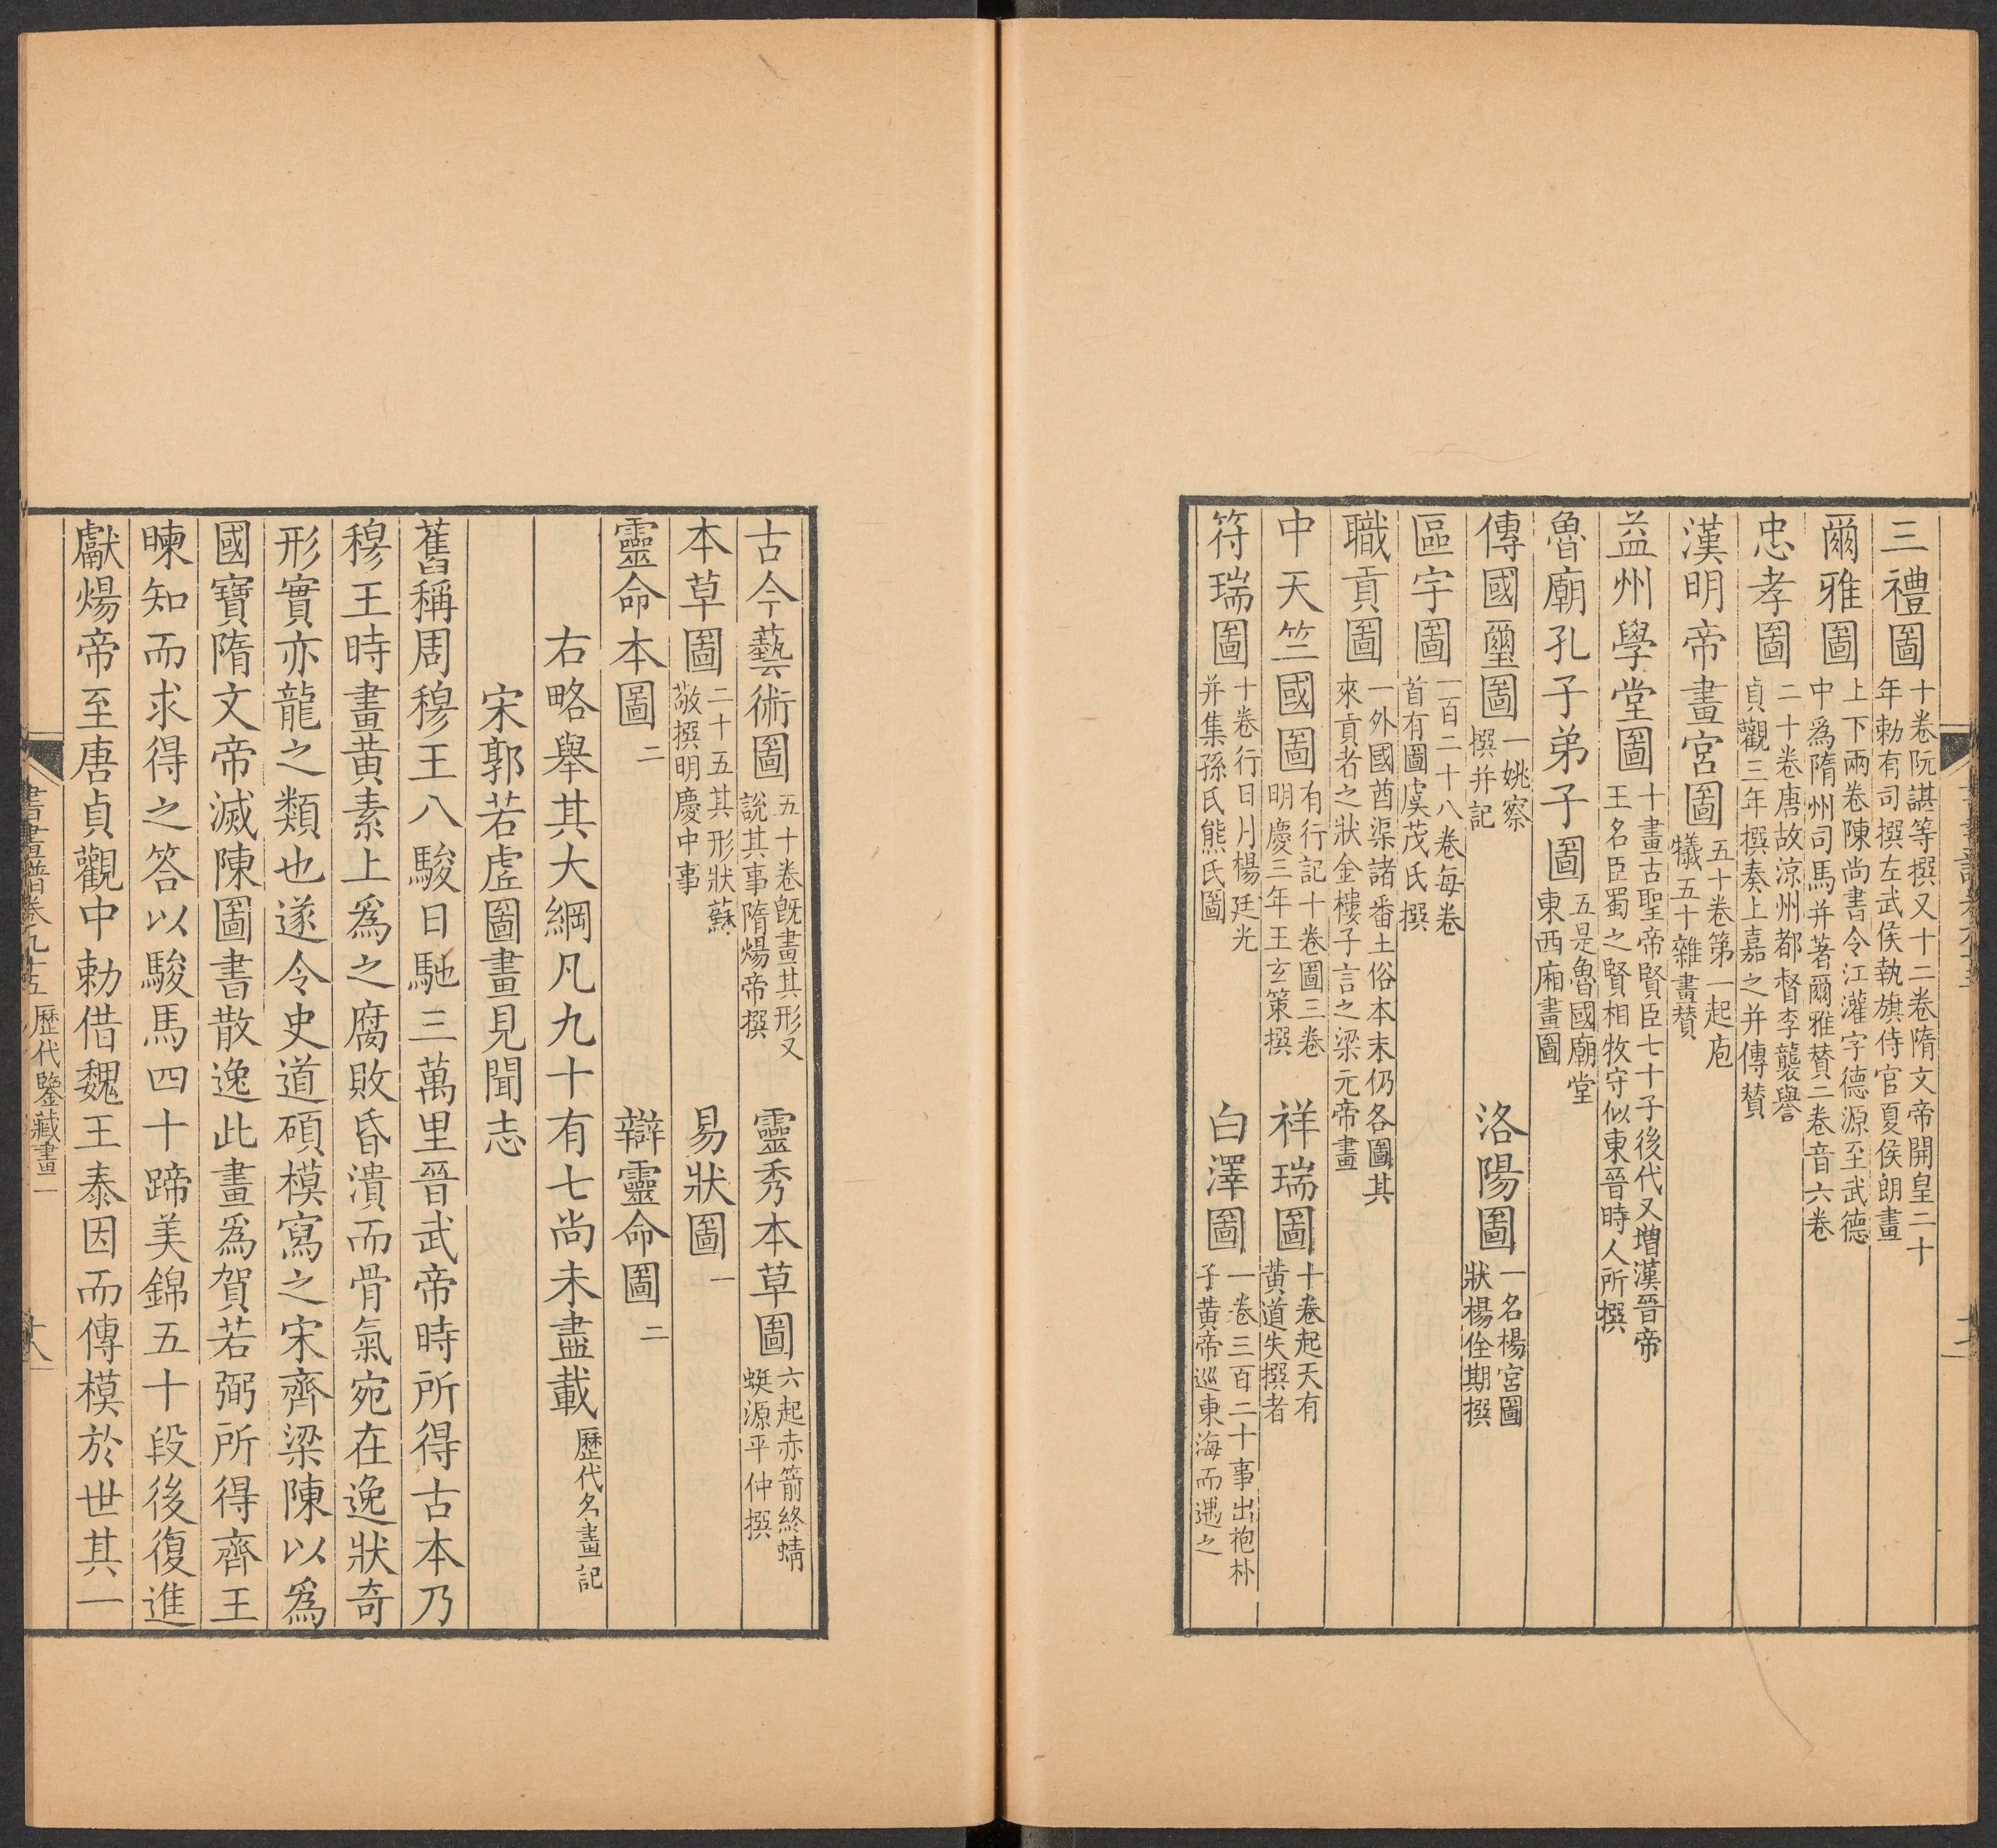 三禮圖十卷阮諶等撰又十二卷隋文帝開皇二十年勅有司撰左武侯執旗侍官夏侯朗畫
爾雅圖上下兩卷陳尚書令江灌字德源至武德中爲隋州司馬并著爾雅賛二卷音六卷
忠孝圖二十卷唐故涼州都督李襲譽貞觀三年撰奏上嘉之并傳賛
漢明帝畫宮圖五十卷第一起庖犧五十雜畫賛
益州學堂圖十畫古聖帝賢臣七十子後代又增漢晉帝王名臣蜀之賢相牧守似東晉時人所撰
魯廟孔子弟子圖五是魯國廟堂東西廂畫圖
傳國璽圖一姚察撰并記 洛陽圖一名楊宮圖狀楊佺期撰
區宇圖一百二十八卷每卷首有圖虞茂氏撰
職貢圖一外國酋渠諸番土俗本末仍各圖其來貢者之狀金樓子言之梁元帝畫
中天竺國圖有行記十卷圖三卷明慶三年王玄策撰 祥瑞圖十卷起天有黄道失撰者
符瑞圖十卷行日月楊廷光并集孫氏熊氏圖 白澤圖一卷三百二十事出抱朴子黄帝巡東海而遇之
古今藝術圖五十卷旣畫其形又說其事隋煬帝撰 靈秀本草圖六起赤箭終蜻蜓源平仲撰
本草圖二十五其形狀蘇敬撰明慶中事 易狀圖一
靈命本圖二 辯靈命圖二
右略舉其大綱凡九十有七尚未盡載歷代名畫記
宋郭若虛圖畫見聞志
舊稱周穆王八駿日馳三萬里晉武帝時所得古本乃
穆王時畫黄素上爲之腐敗昏潰而骨氣宛在逸狀奇
形實亦龍之類也遂令史道碩模寫之宋齊梁陳以爲
國寶隋文帝滅陳圖書散逸此畫爲賀若弼所得齊王
暕知而求得之答以駿馬四十蹄美錦五十段後復進
獻煬帝至唐貞觀中勅借魏王泰因而傳模於世其一
書畫譜卷九十五 歷代鑒藏畫一 十八